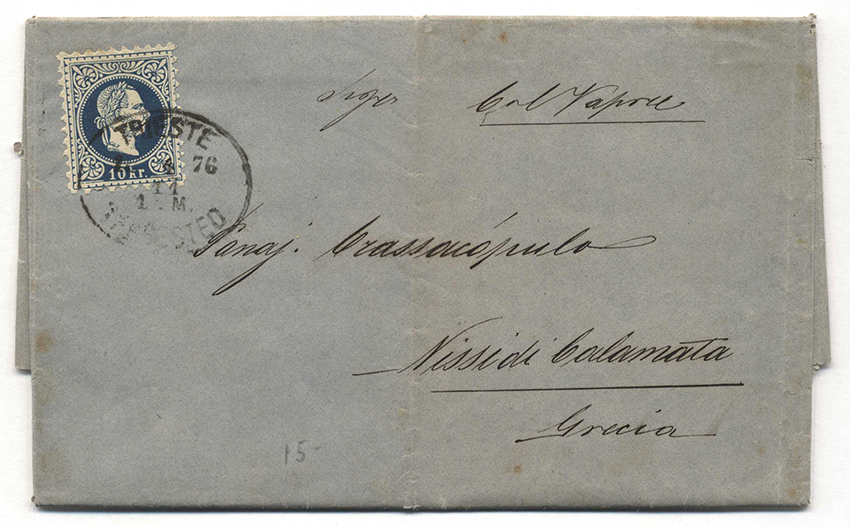 Col Vapore
TRIESTE
76
10 kr.
11
M.
Panaj. Crassacópulo
Nissi di Calamata
Grecia
15-